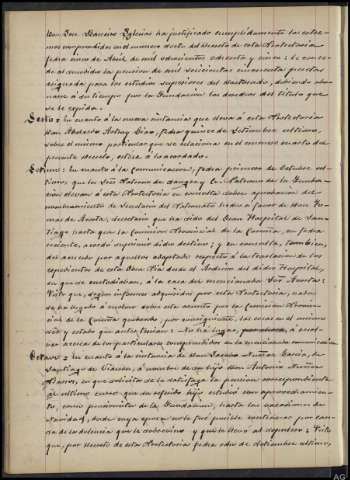 Don José Sanchez Iglesias ha justificado cumplidamente los extre-
mos comprendidos en el numero de este Protectorado
fecha once de Abril de mil ochocientos ochenta y cinco: le conce-
de al mismo la pension de mil seiscientas cincuenta pesetas
asignada para los estudios superiores del Doctorado, debiendo abo-
narse á su tiempo por la Fundacion los derechos del titulo que
se le espida.
Sesto: En cuanto á la nueva instancia que eleva á este Protectorado
Don fecha quince de Setiembre ultimo,
sobre el mismo particular que se relaciona en el numero cuarto del
presente decreto, estése á lo acordado.
Setimo: En cuanto á la comunicacion, fecha primero de Octubre ul-
timo, que los Srs. Patronos de y la Patrona de la Funda-
cion elevan á este Protectorado en consulta sobre aprobacion del
nombramiento de Secretario del Patronato hecho á favor de Don Fer-
de Acosta, Secretario que ha sido del Gran Hospital de San-
tiago hasta que la Comision Provincial de la Coruña, en fecha
reciente, acordó suprimir dicho destino; y en consulta, tambien,
del acuerdo por aquellos adoptado respecto á la traslacion de los
expedientes de esta Obra Pia desde el Archivo del dicho Hospital,
en que se custodiaban, á la casa del mencionado Sr. Acosta:
Visto que, segun informes adquiridos por este Protectorado, nada
se ha hecho á sobre este asunto por la Comision Provin-
cial de la Coruña quedando, por consiguiente, las cosas en el mismo
sér y estado que antes tenian: No há lugar, á resol-
ver acerca de los particulares comprendidos en la mencionada comunicacion
Octavo: En cuanto á la instancia de Don Jacobo Nuñez Garcia, de
Santiago de á nombre de su hijo Don Antonio Nuñez
en que solicita se le satisfaga la pension correspondiente
al ultimo curso que su referido hijo estudió con aprovechamien-
to, como pensionista de la Fundacion, hasta las vacaciones de
Navidad, desde cuya época no le fué posible continuar por cau-
sa de la dolencia que le sobrevino y que le llevó al sepulcro: Visto
que, por decreto de este Protectorado fecha ocho de Setiembre ultimo,
AG